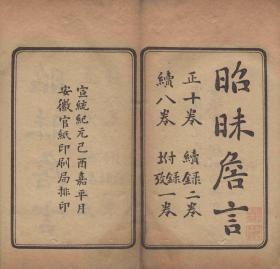 昭昧詹言
正十卷 續録二卷
續八卷 坿録攷一卷
宣統紀元己酉嘉平月
安徽官紙印刷局排印